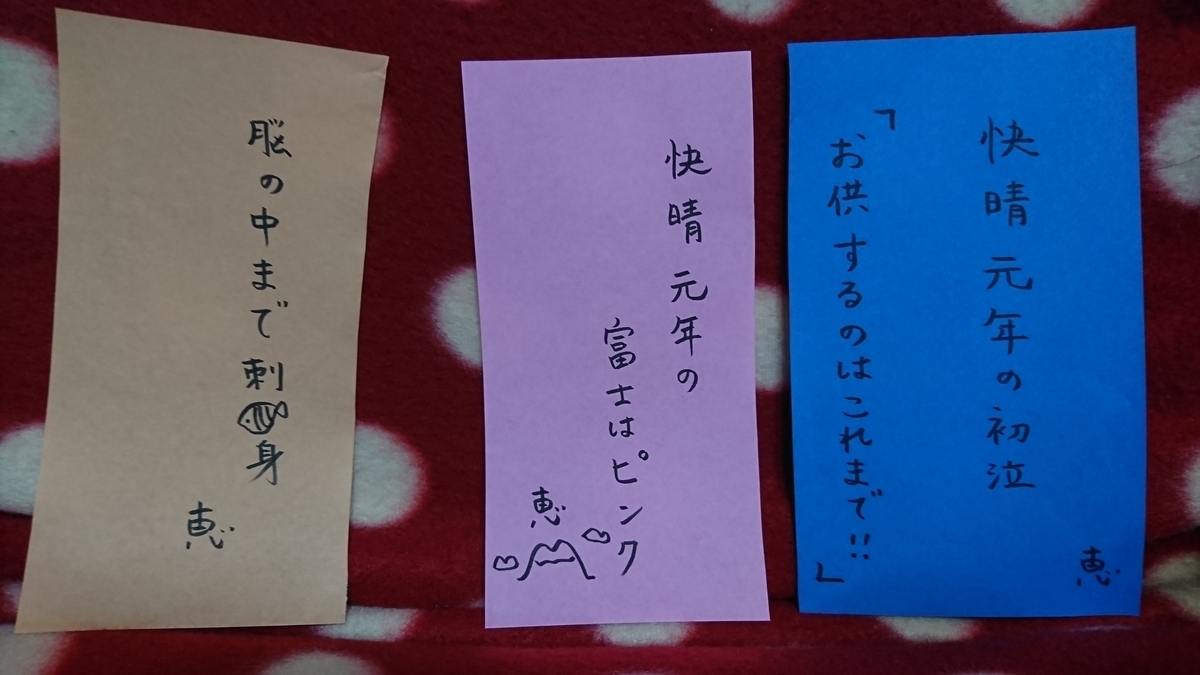 快晴元年の初泣
「お供するのはこれまで!!」
恵
快晴元年の
富士はピンク
恵
脳の中まで刺身
恵